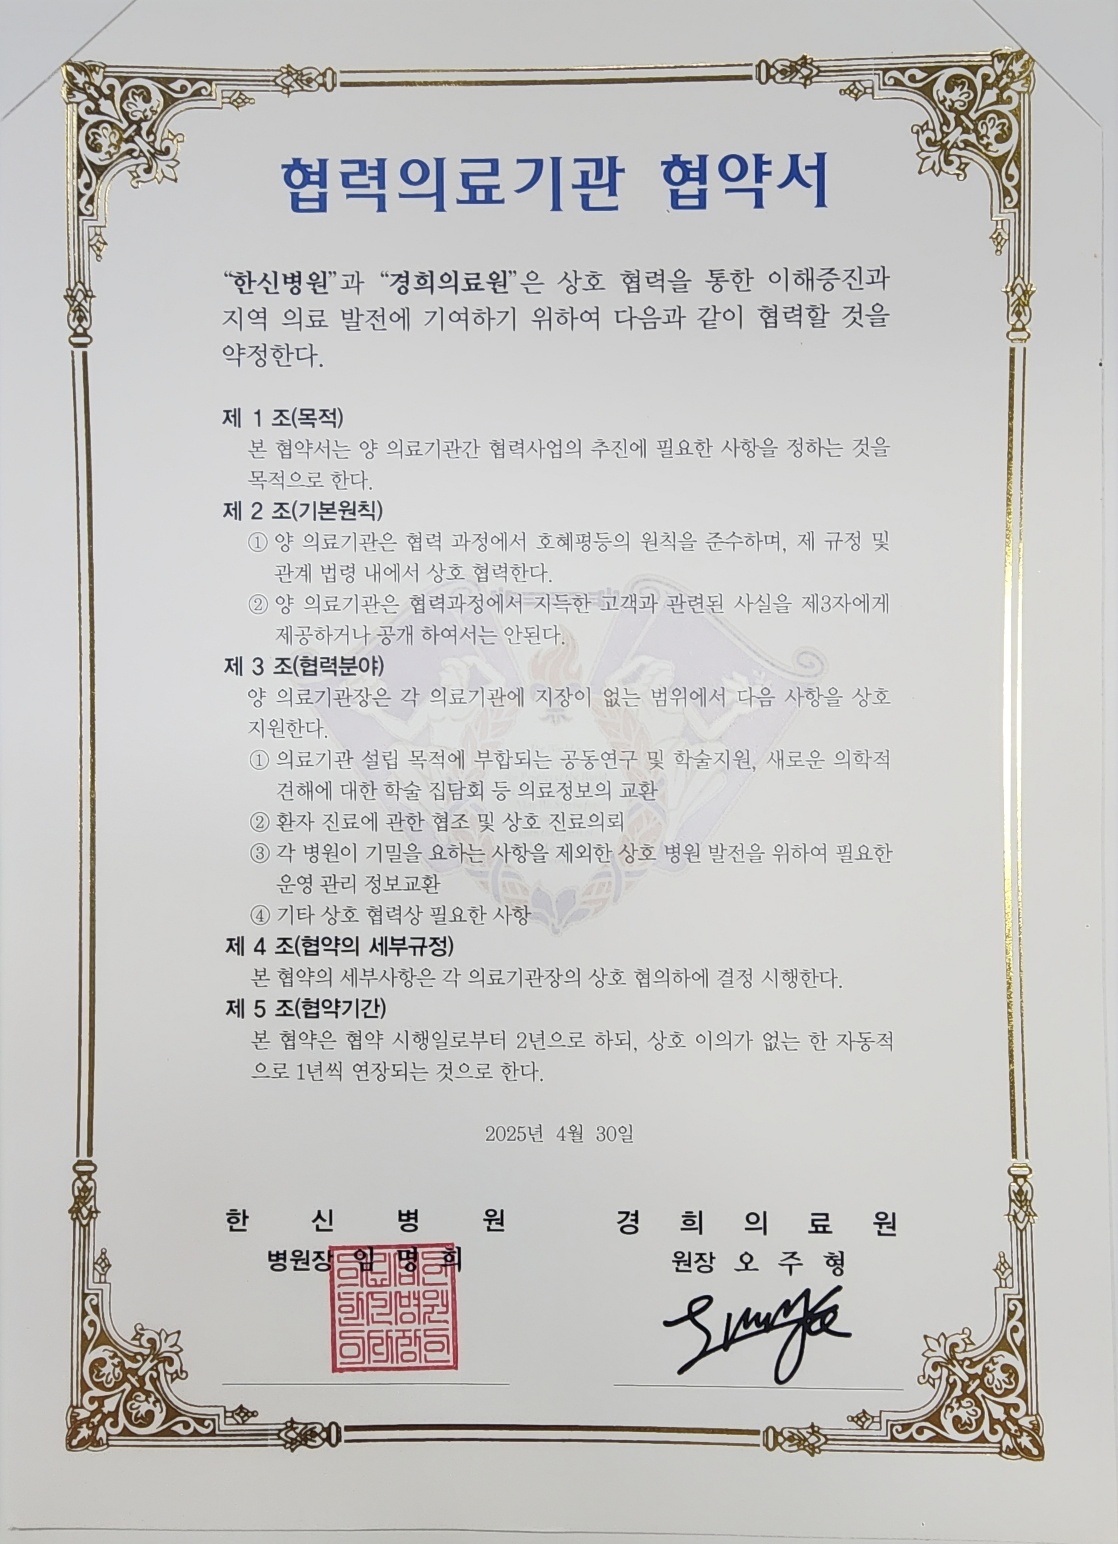 협력의료기관 협약서
“한신병원”과 “경희의료원”은 상호 협력을 통한 이해증진과
지역 의료 발전에 기여하기 위하여 다음과 같이 협력할 것을
약정한다.
제 1 조(목적)
본 협약서는 양 의료기관간 협력사업의 추진에 필요한 사항을 정하는 것을
목적으로 한다.
제 2 조(기본원칙)
① 양 의료기관은 협력 과정에서 호혜평등의 원칙을 준수하며, 제 규정 및
관계 법령 내에서 상호 협력한다.
② 양 의료기관은 협력과정에서 지득한 고객과 관련된 사실을 제3자에게
제공하거나 공개 하여서는 안된다.
제 3 조(협력분야)
양 의료기관장은 각 의료기관에 지장이 없는 범위에서 다음 사항을 상호
지원한다.
① 의료기관 설립 목적에 부합되는 공동연구 및 학술지원, 새로운 의학적
견해에 대한 학술 집담회 등 의료정보의 교환
② 환자 진료에 관한 협조 및 상호 진료의뢰
③ 각 병원이 기밀을 요하는 사항을 제외한 상호 병원 발전을 위하여 필요한
운영 관리 정보교환
④ 기타 상호 협력상 필요한 사항
제 4 조(협약의 세부규정)
본 협약의 세부사항은 각 의료기관장의 상호 협의하에 결정 시행한다.
제 5 조(협약기간)
본 협약은 협약 시행일로부터 2년으로 하되, 상호 이의가 없는 한 자동적
으로 1년씩 연장되는 것으로 한다.
2025년 4월 30일
한 신 병 원
병원장 임 명 희
경 희 의 료 원
원장 오 주 형